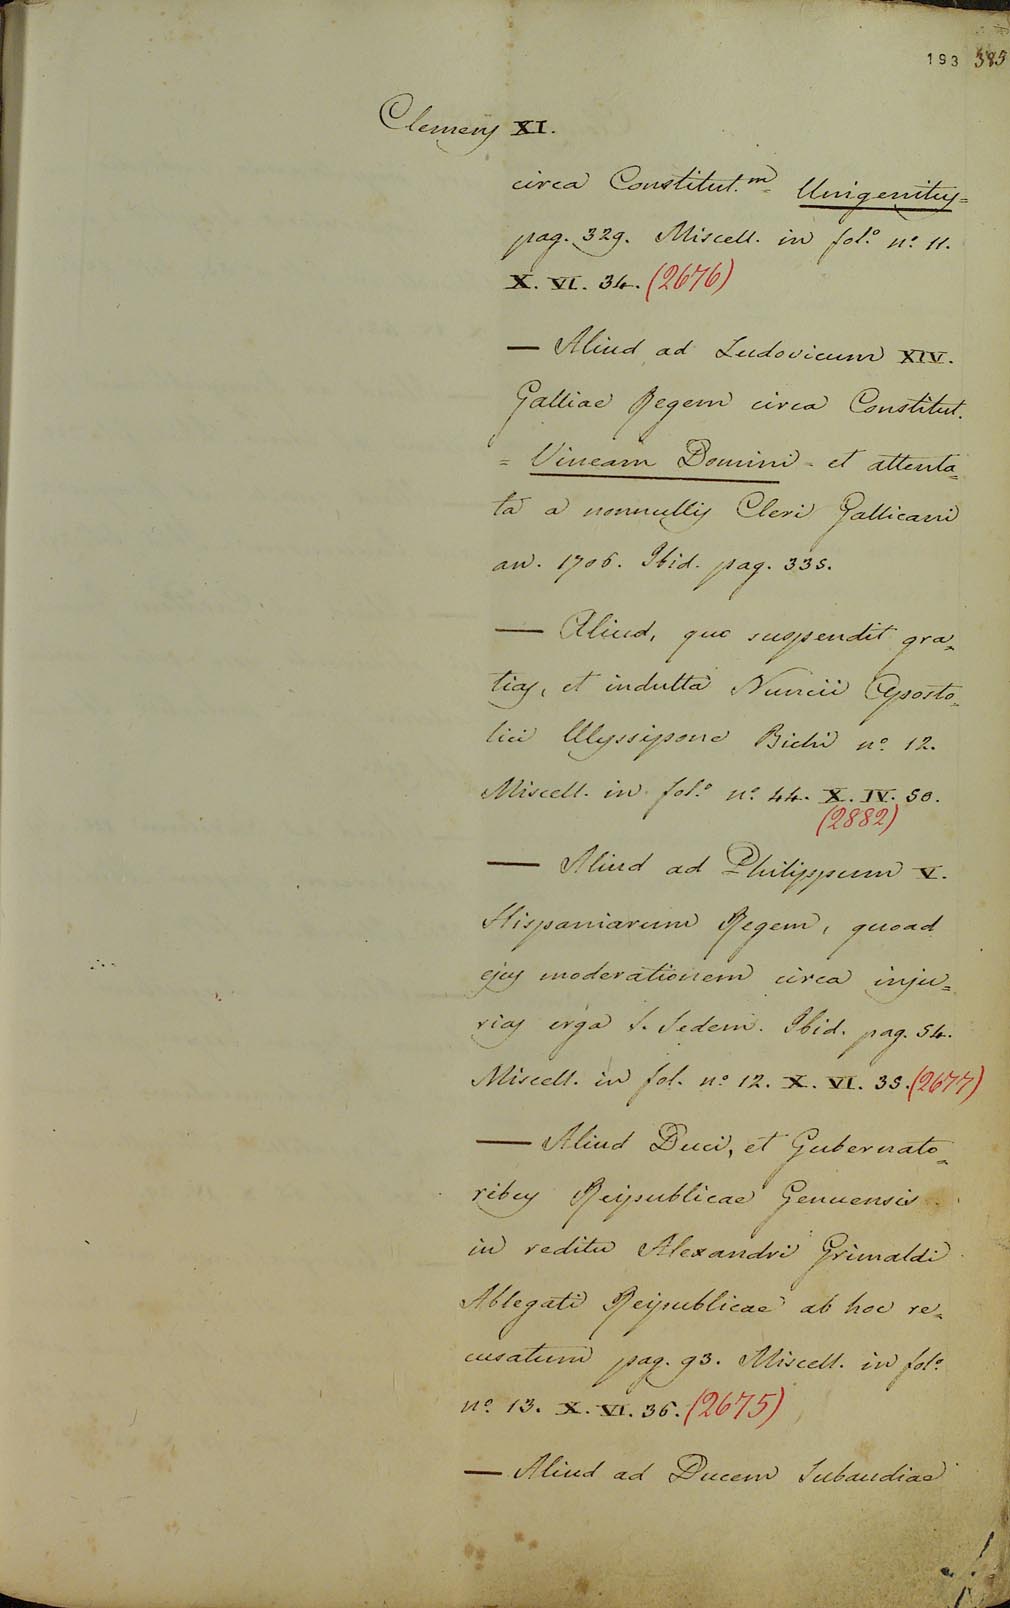 193 385
Clemens XI.
circa Constitut.m Unigenitus=
pag. 329. Miscell. in fol.º nº 11.
X. VI. 34. (2676)
— Aliud ad Ludovicum XIV.
Galliae Regem circa Constitut.
= Vineam Domini = et attenta=
ta a nonnullis Cleri Gallicani
an. 1706. Ibid. pag. 335.
— Aliud, quo suspendit gra=
tias, et indulta Nuncii Aposto=
lici Ulyssipone Bichi nº 12.
Miscell. in fol.º nº 44. X. IV. 50.
(2882)
— Aliud ad Philippum V.
Hispaniarum Regem, quoad
ejus moderationem circa inju=
rias erga S. Sedem. Ibid. pag. 54.
Miscell. in fol. nº 12. X. VI. 35. (2677)
— Aliud Duci, et Gubernato=
ribus Reipublicae Genuensis
in reditu Alexandri Grimaldi
Ablegati Reipublicae ab hoc re=
cusatum pag. 93. Miscell. in fol.º
nº 13. X. VI. 36. (2675)
— Aliud ad Ducem Subaudiae